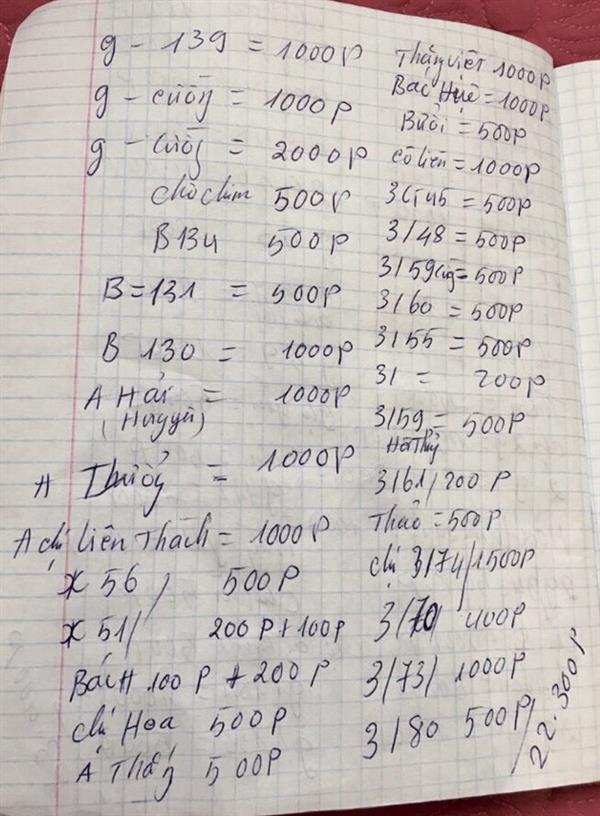 g - 139 = 1000P
g - cường = 1000P
g - = 2000P
chim 500P
B134 500P
B = 131 = 500P
B 130 = 1000P
A Hải = 1000P
A = 1000P
A chị Liên Thành = 1000P
X 56 / 500P
X 51/ 200P + 100P
Bác H 100P + 200P
chị Hoa 500P
A Thắng 500P
Thắng Việt 1000P
Bác Huê = 1000P
Bười = 500P
cô Liên = 1000P
= 500P
3/48 = 500P
3/59 = 500P
3/60 = 500P
3/55 = 500P
31 = 200P
3/59 = 500P
3/61/200P
Thảo = 500P
chị 3/74/1500P
3/70/ 400P
3/73/ 1000P
3/80 500P/
22.300P